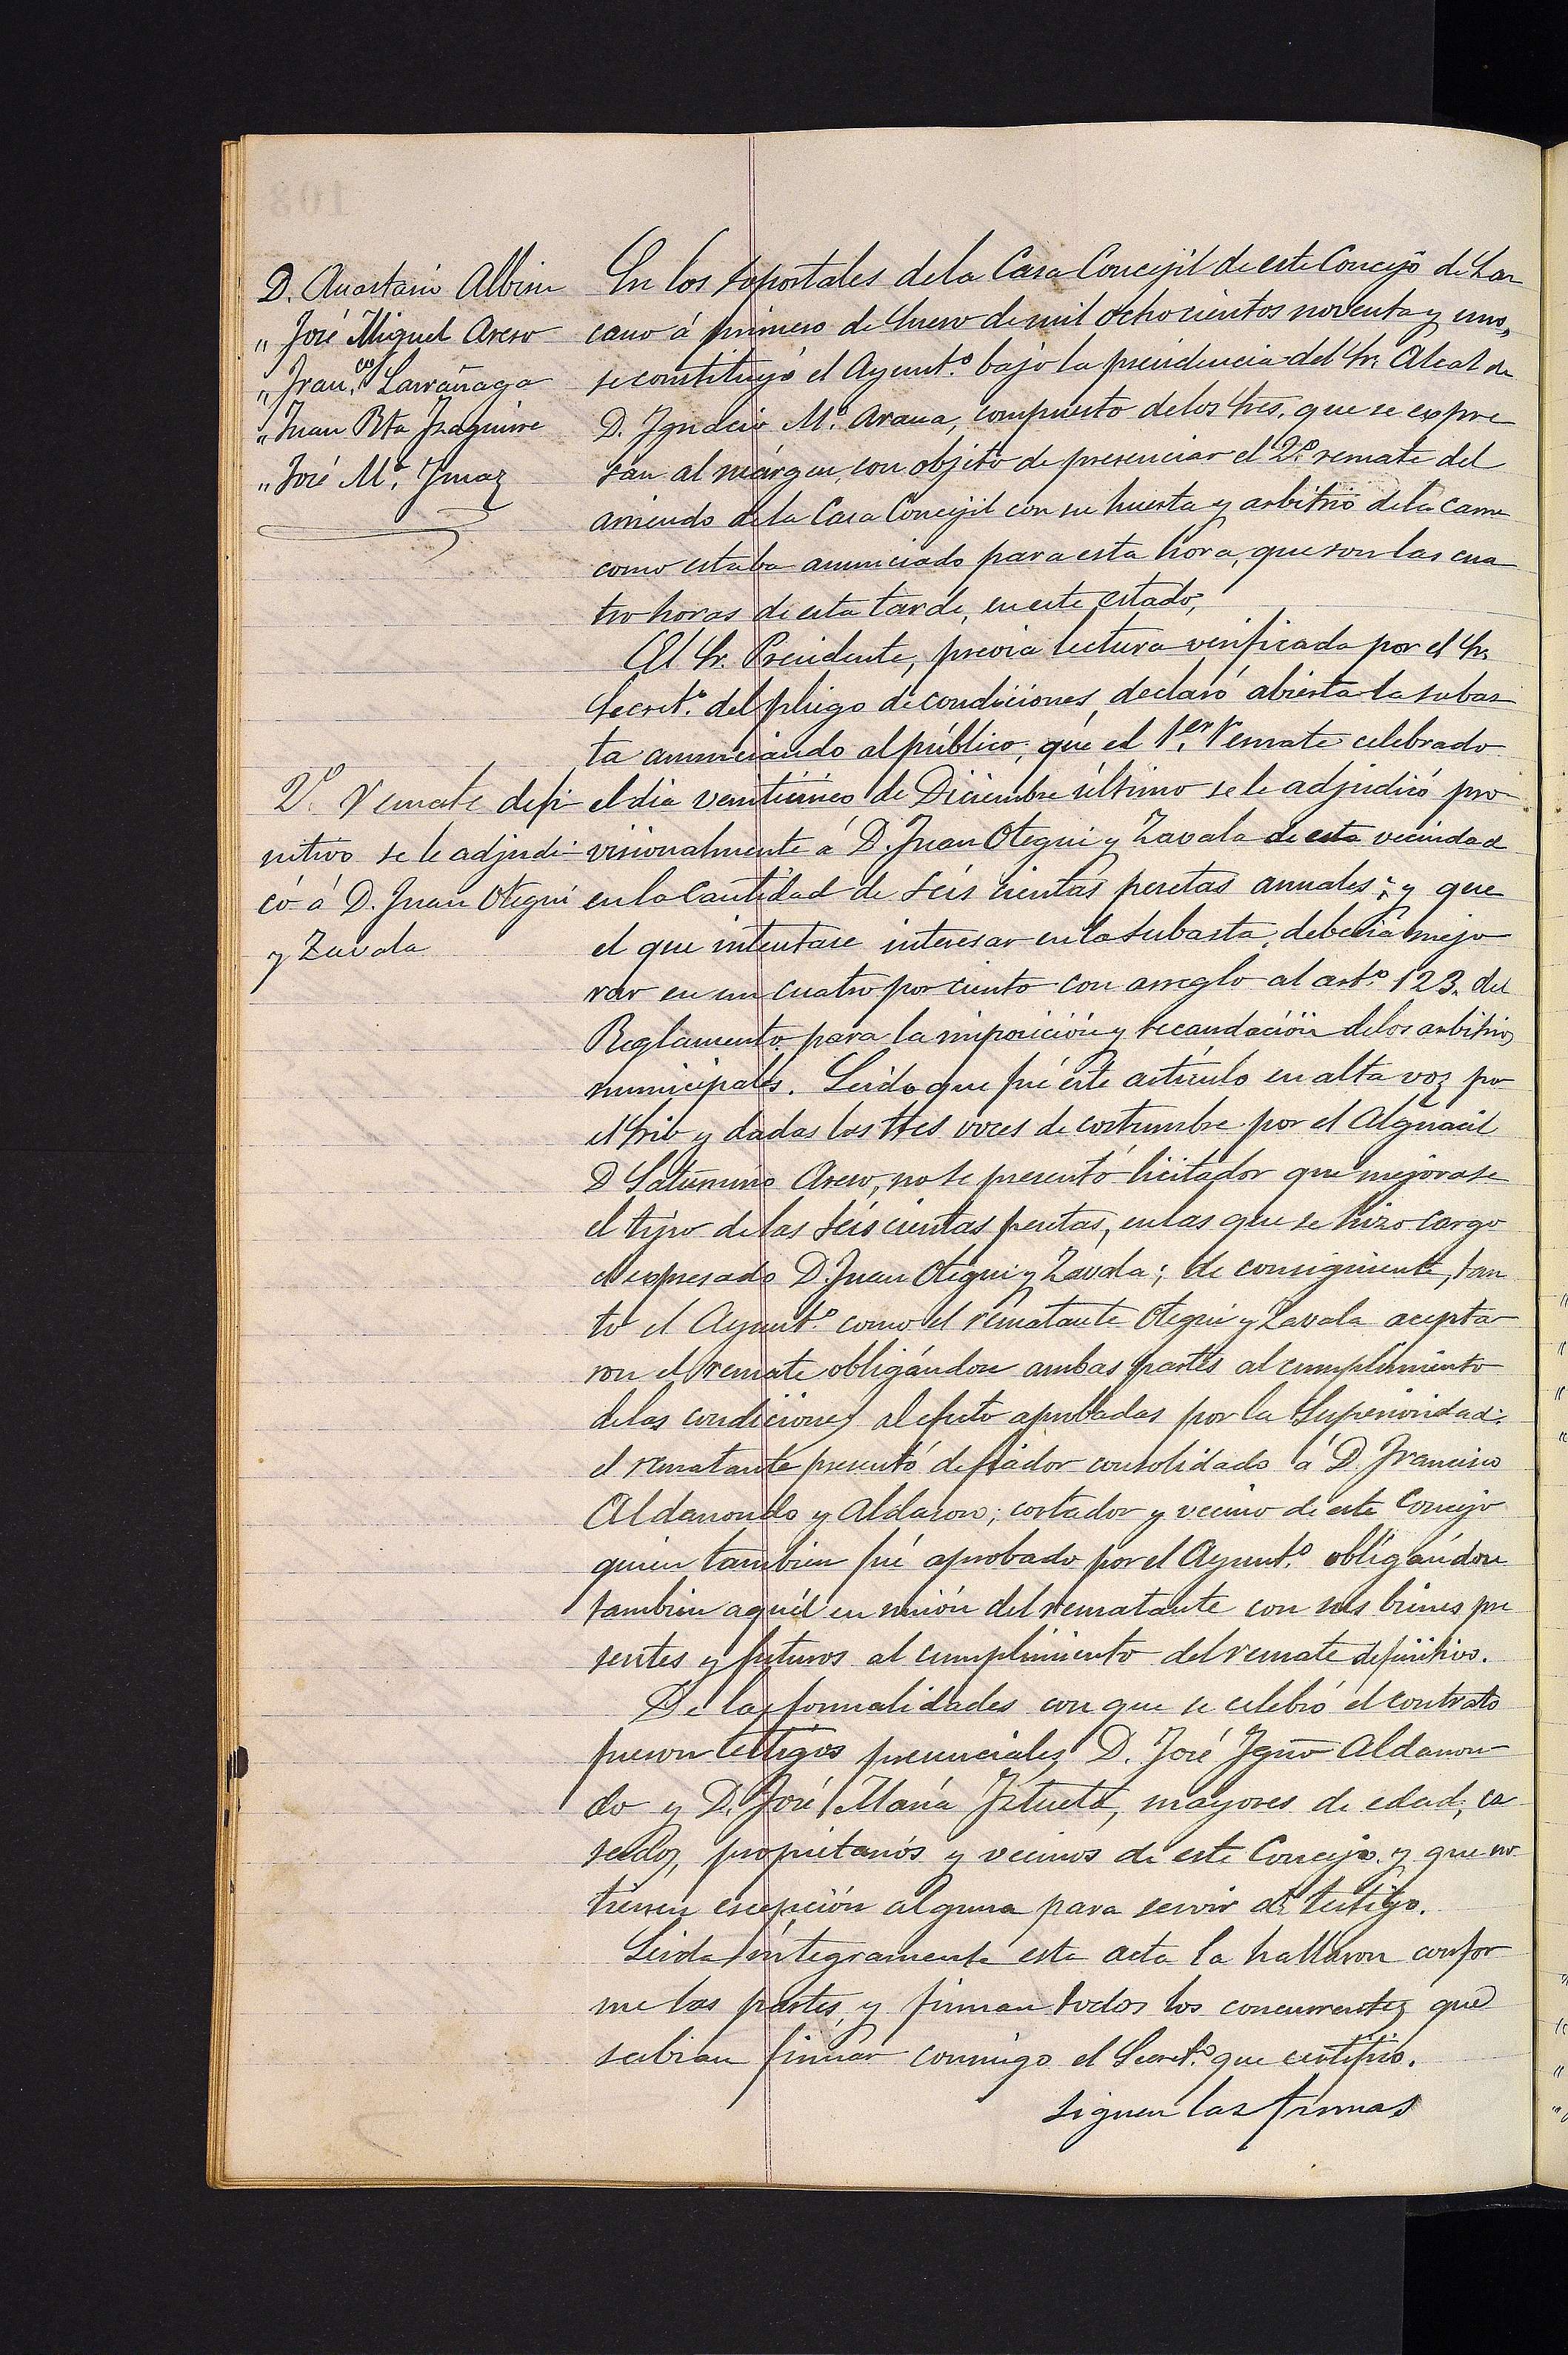 D. Anastasio Albisu
" José Miguel Areso
" Fran.co Larrañaga
" Juan Bta Izaguirre
" José M.ª Ymaz
En los soportales de la Casa Concejil de este Concejo de Laz
cano á primero de Enero de mil ochocientos noventa y uno,
se constituyó el Ayunt.º bajo la presidencia del Sr. Alcalde
D. Ygnacio M.ª Arana, compuesto de los Sres. que se expre
san al márgen, con objeto de presenciar el 2.º remate del
arriendo de la Casa Concejil con su huerta y arbitrio de la carne
como estaba anunciado para esta hora, que son las cua
tro horas de esta tarde, en este estado,
El Sr. Presidente, previa lectura verificada por el Sr.
Secret.º del pliego de condiciones, declaró abierta la subas
ta anunciando al público, que el 1.er remate celebrado
2.º remate defi
nitivo se le adjudi-
có á D. Juan Otegui
y Zavala
el dia veinticinco de Diciembre último se le adjudicó pro
visionalmente á D. Juan Otegui y Zavala de esta vecindad
en la cantidad de seis cientas pesetas anuales; y que
el que intentase interesar en la subasta, deberia mejo
rar en un cuatro por ciento con arreglo al art.º 123. del
Reglamento para la imposición y recaudación de los arbitrios
municipales. Leido que fué este artículo en alta voz por
el Srio y dadas las tres voces de costumbre por el Alguacil
D Saturnino Areso, no se presentó licitador que mejorase
el tipo de las seis cientas pesetas, en las que se hizo cargo
el expresado D. Juan Otegui y Zavala; de consiguiente, tan
to el Ayunt.º como el rematante Otegui y Zavala acepta
ron el remate obligándose ambas partes al cumplimiento
de las condiciones al efecto aprobadas por la Superioridad:
el rematante presentó de fiador consolidado á D. Francisco
Aldanondo y Aldasoro, cortador y vecino de este Concejo
quien tambien fué aprobado por el Ayunt.º obligándose
tambien aquél en unión del rematante con sus bienes pre
sentes y futuros al cumplimiento del remate definitivo.
De las formalidades con que se celebró el contrato
fueron testigos presenciales D. José Ygn.º Aldanon-
do y D. José María Iztueta, mayores de edad, ca
sados, propietarios y vecinos de este Concejo y que no
tienen escepción alguna para servir de testigo.
Leida íntegramente esta acta la hallaron confor
me las partes, y firman todos los concurrentes que
sabian firmar conmigo el Secret.º que certifico.
Siguen las firmas